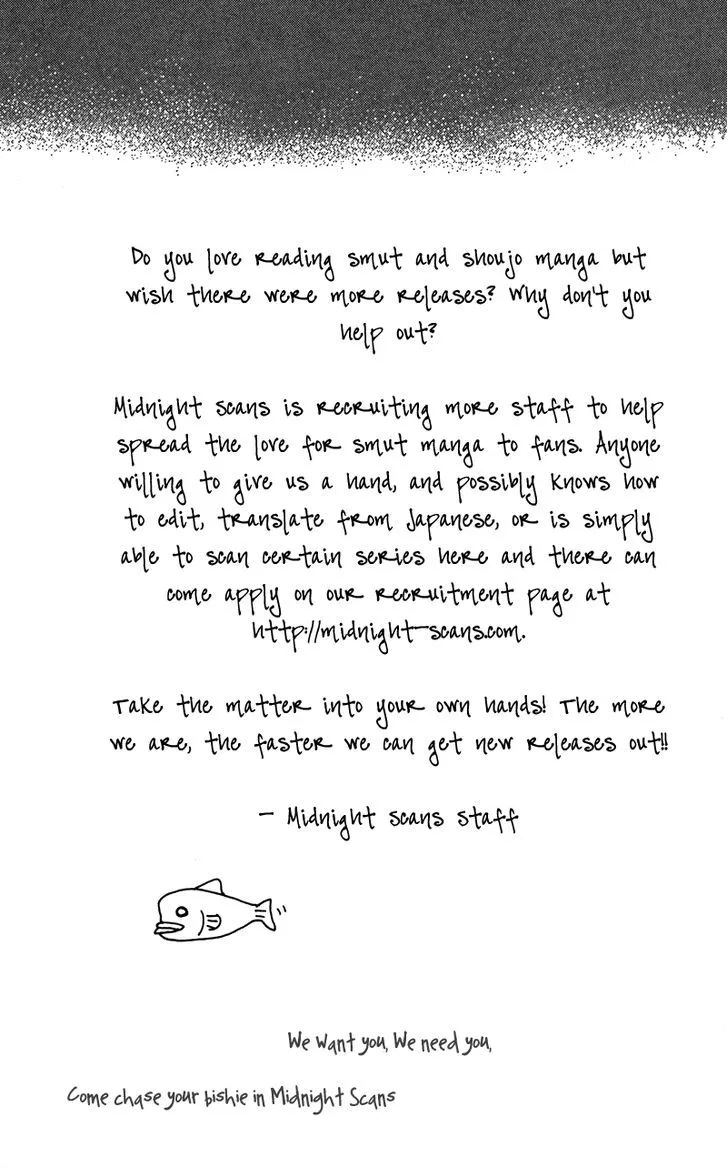 Do you love reading smut and shoujo manga but
wish there were more releases? Why don't you
help out?
Midnight scans is recruiting more staff to help
spread the love for smut manga to fans. Anyone
willing to give us a hand, and possibly knows how
to edit, translate from Japanese, or is simply
able to scan certain series here and there can
come apply on our recruitment page at
http://midnight-scans.com.
Take the matter into your own hands! The more
we are, the faster we can get new releases out!!
- Midnight scans staff
We want you, We need you,
Come chase your bishie in Midnight Scans